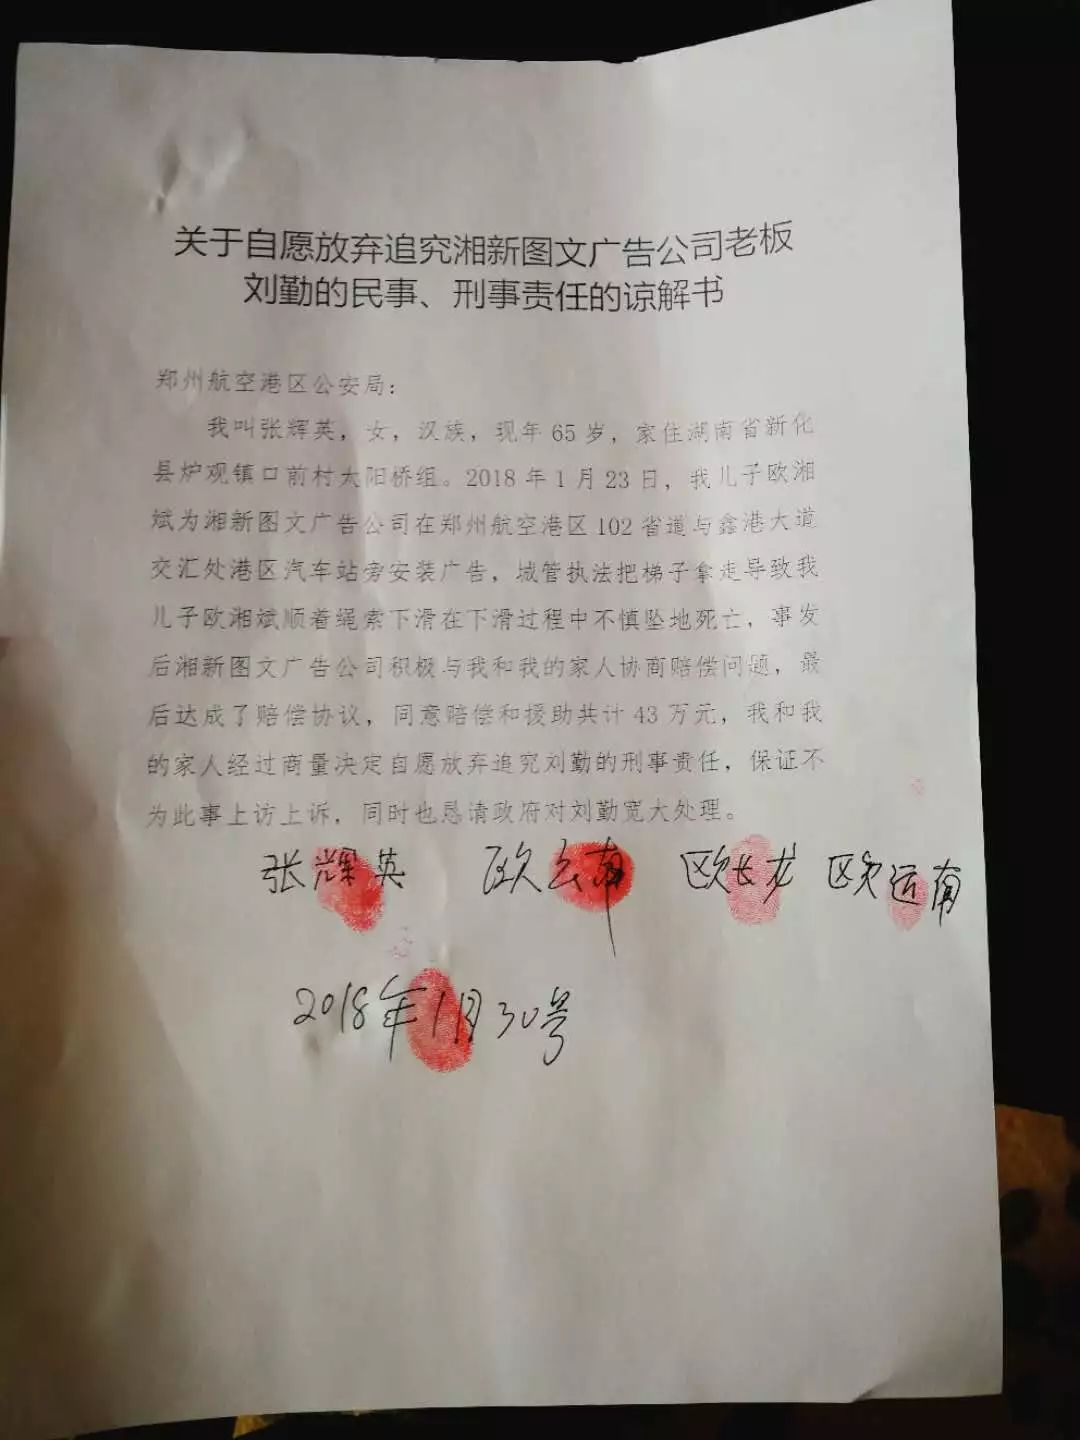 关于自愿放弃追究湘新图文广告公司老板
刘勤的民事、刑事责任的谅解书
郑州航空港区公安局：
我叫张辉英，女，汉族，现年65岁，家住湖南省新化
县炉观镇口前村太阳桥组。2018年1月23日，我儿子欧湘
斌为湘新图文广告公司在郑州航空港区102省道与鑫港大道
交汇处港区汽车站旁安装广告，城管执法把梯子拿走导致我
儿子欧湘斌顺着绳索下滑在下滑过程中不慎坠地死亡，事发
后湘新图文广告公司积极与我和我的家人协商赔偿问题，最
后达成了赔偿协议，同意赔偿和援助共计43万元，我和我
的家人经过商量决定自愿放弃追究刘勤的刑事责任，保证不
为此事上访上诉，同时也恳请政府对刘勤宽大处理。
张辉英 欧云南 欧长龙 欧运南
2018年1月30号